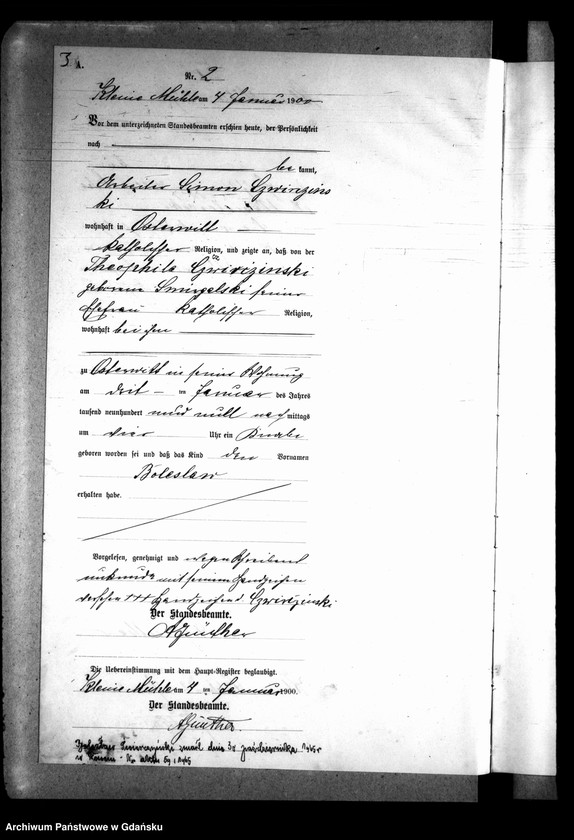 3 A.
Nr. 2
Kleine Mühle am 4 Januar 1900
Vor dem unterzeichneten Standesbeamten erschien heute, der Persönlichkeit
nach
be kannt,
Arbeiter Simon
ki
wohnhaft in Osterwitt
katholischer Religion, und zeigte an, daß von der
Theophila
geborene Smigelski seiner
Ehefrau katholischer Religion,
wohnhaft bei ihm
zu Osterwitt in seiner Wohnung
am drit ten Januar des Jahres
tausend neunhundert null nach mittags
um vier Uhr ein Knabe
geboren worden sei und daß das Kind den Vornamen
Boleslaw
erhalten habe.
Vorgelesen, genehmigt und wegen Schreibens
unkunde mit seinem Handzeichen
versehen +++ Handzeichen
Der Standesbeamte.
AGünther
Die Uebereinstimmung mit dem Haupt-Register beglaubigt.
Kleine Mühle am 4 ten Januar 1900.
Der Standesbeamte.
AGünther.
zmarł dnia 30 października
Archiwum Państwowe w Gdańsku